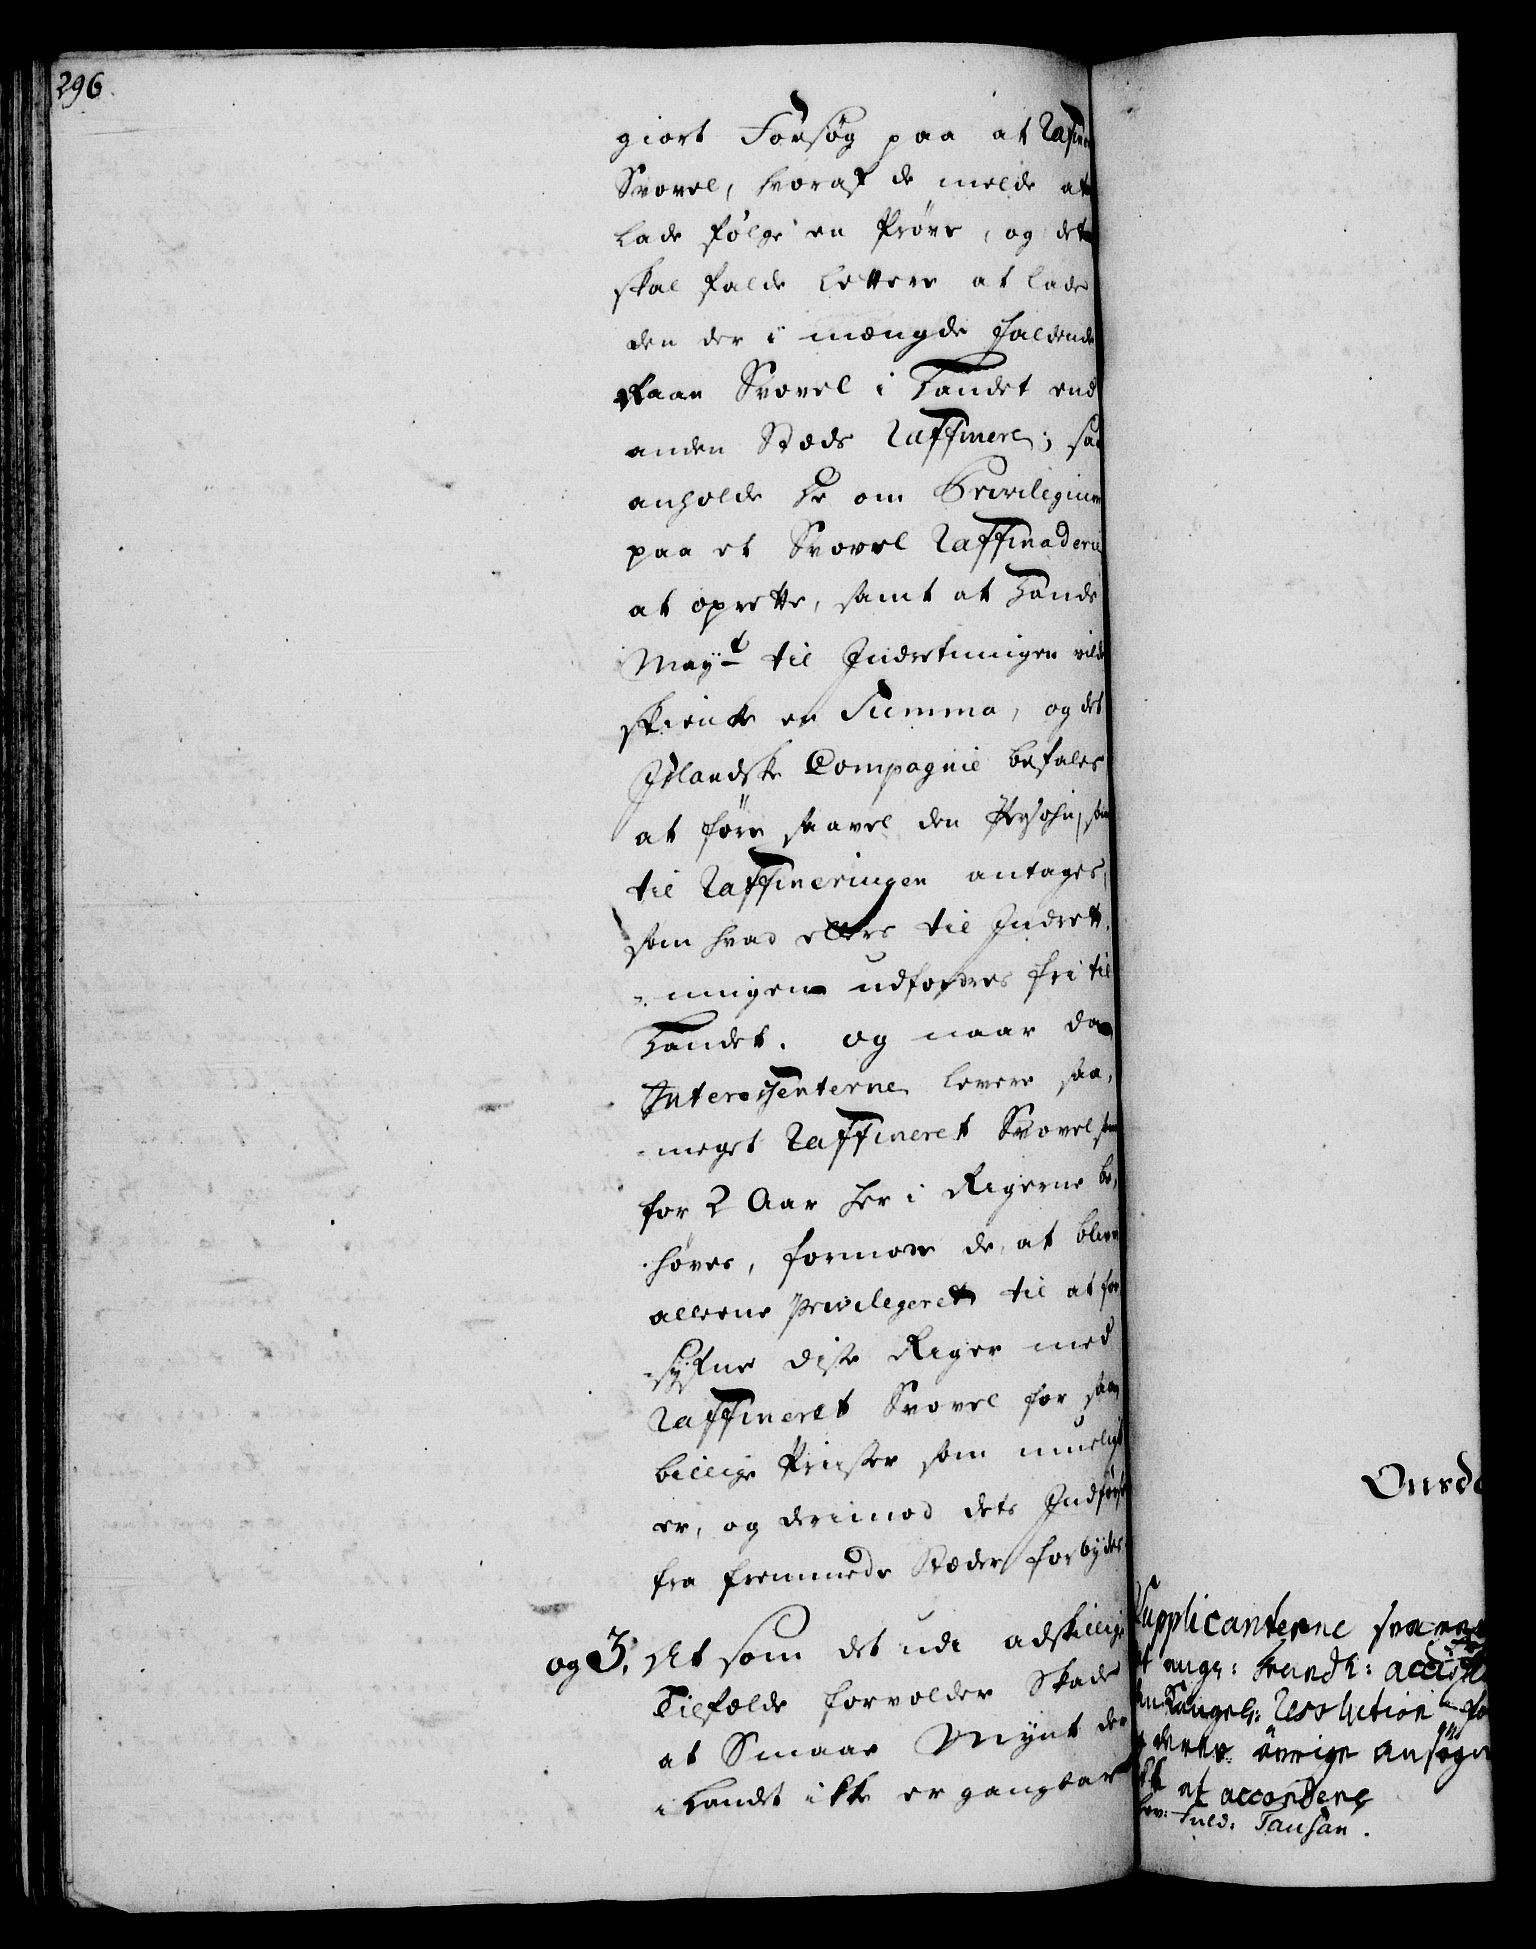 296.
giort Forsøg paa at Rafine
Svovel, hvoraf de melde at
lade følge en Prøve, og det
skal falde lettere at lade
den der i mængde faldende
Raae Svovel i Landet end
anden Stæds Raffinere; saa
anholde de om Privilegium
paa et Svovel Raffinaderie
at oprette, samt at Hands
Mayt til Indretningen vilde
skienke en Summa, og det
Islandske Compagnie befales
at føre saavel den Persohn, som
til Raffineringen antages,
som hvad ellers til Indrett-
ningen udfordres frit til
Landet. og naar da
Interessenterne levere saa
meget Raffineret Svovel som
for 2 Aar her i Rigerne be-
høves, formode de, at blive
alleene Privilegeret til at for-
syne disse Riger med
Raffineret Svovel for saa
billige Priiser som mueligt
er, og derimod dets Indførsel
fra fremmede Stæder forbydes.
og 3. At som det udi adskillige
Tilfælde forvolder Skade
at Smaae Mynt der
i Landet ikke er gangbar
Onsd
Supplicanterne
Resolution
øvrige ansøgn
at accordere
Tausan.